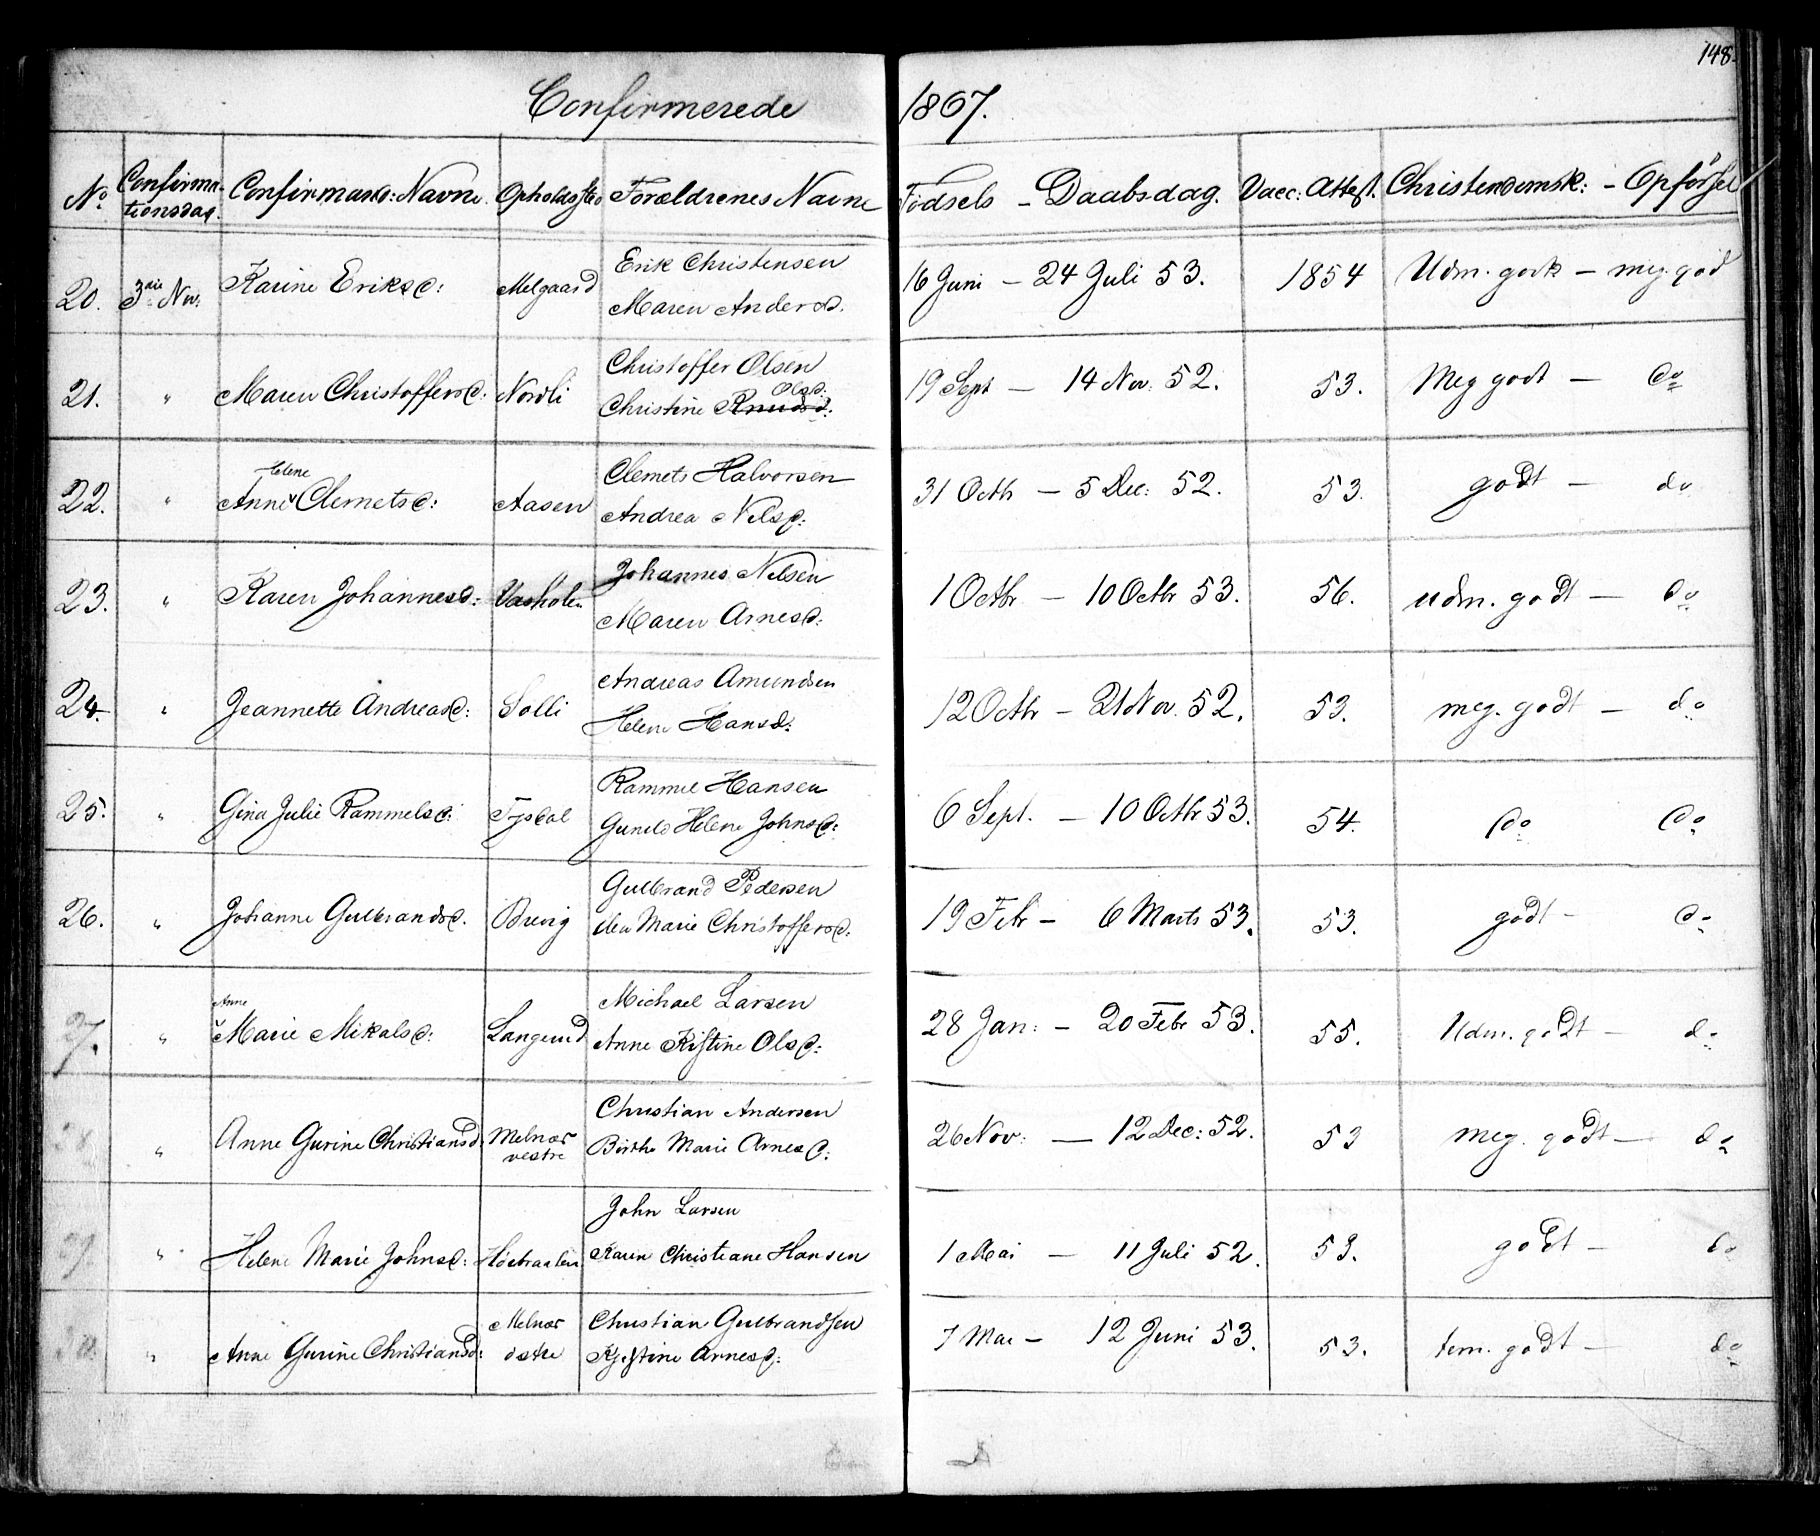 148.
Confirmerede 1867.
No Confirma-tionsdag. Confirmand: Navne. Opholdssted Forældrenes Navne Fødsels - Daabsdag. Vacc: Attest. Christendomsk: - Opførsel
Erik Christensen
20. 3die Nov. Karine Eriksd: Melgaard 16 Juni - 24 Juli 53. 1854 Udm. godt - meg. god
Maren Andersd.
Christoffer Olsen
Olsd:
21. " Maren Christoffersd: Nordli Christine Knudsd: 19 Sept - 14 Nov. 52. 53. Meg godt - do
Helene Clemets Halvorsen
22. " Anne Clemetsd: Aasen 31 Octbr - 5 Dec: 52. 53. godt - do
Andrea Nelsd:
Johannes Nelsen
23. " Karen Johannesd: Vasholen 1 Octbr - 10 Octbr 53. 56. udm. godt - do
Maren Arnesd:
Andreas Amundsen
24. " Jeannette Andreasd: Solli 12 Octbr - 21 Nov. 52. 53. meg. godt - do
Helene Hansd:
Rammel Hansen
25. " Gina Julie Rammelsd: Tysdal Gunild Helene Johnsd: 6 Sept. - 10 Octbr 53. 54. do do
Gulbrand Pedersen
26. " Johanne Gulbrandsd. Brevig Marie Christoffersd: 19 Febr - 6 Marts 53. 53. godt - do
Anne Michael Larsen
27. " Marie Mikalsd: Langerud Anne Kistine Olsd: 28 Jan: - 20 Febr 53. 55. Udm. godt - do
Christian Andersen
28 " Anne Gurine Christiansd: Melnæs vestre Birthe Marie Arnesd: 26 Nov: - 12 Dec: 52. 53 meg. godt - do
John Larsen
29 " Helene Marie Johnsd: Høebraaten Karen Christiane Hansen 1 Mai - 11 Juli 52. 53. godt - do
Melnæs Christian Gulbrandsen
30. " Anne Gurine Christiansd: østre Kjistine Arnesd: 7 Mai - 12 Juni 53. 53. tem. godt - do